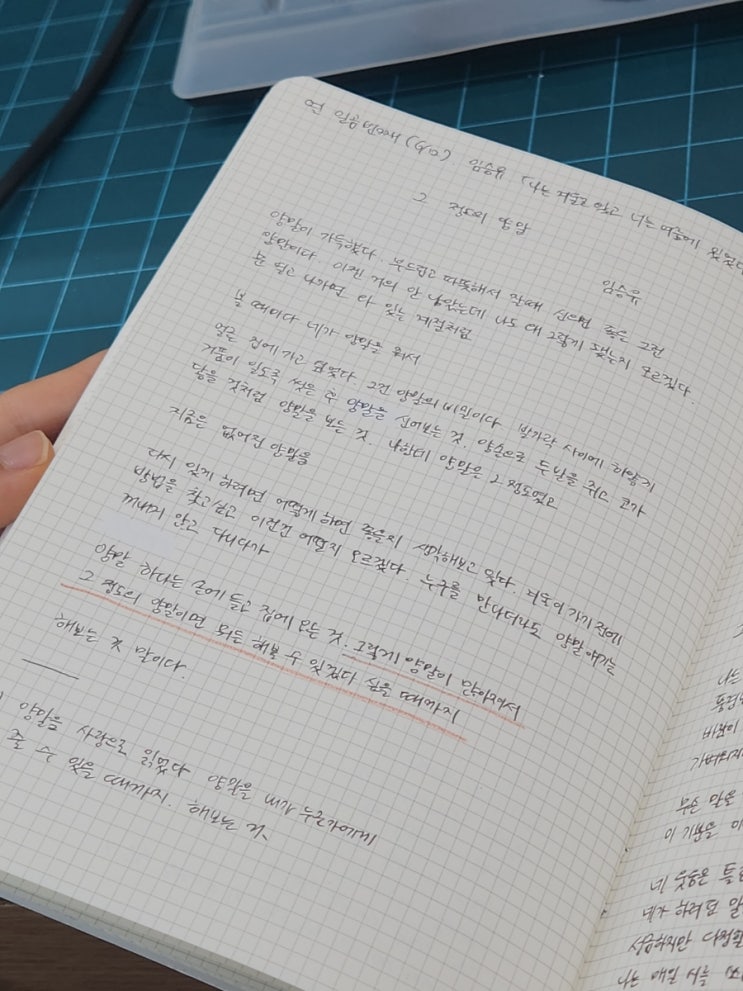 연 일곱번째 (GD) 임승유 「나는 겨울로 왔고 너는 여름에 있었다
그 정도의 양말
임승유
양말이 가득했다. 부드럽고 따뜻해서 잘때 신으면 좋은 그런
양말이다. 이젠 거의 안 남았는데 나도 왜 그렇게 됐는지 모르겠다.
문 열고 나가면 와 있는 계절처럼
볼 때마다 네가 양말을 줘서
얼른 집에 가고 싶었다. 그건 양말의 비밀이다 발가락 사이에 하얗게
거품이 일도록 씻은 후 양말을 신어보는 것. 양손으로 두발을 쥐고 코가
닿을 것처럼 양말을 보는 것. 나한테 양말은 그 정도였고
지금은 없어진 양말을
다시 있게 하려면 어떻게 하면 좋을지 생각해보고 있다. 더 늦어 가기 전에
방법을 찾고싶고 이전건 어땠지 모르겠다. 누구를 만나더라도 양말얘기는
꺼내지 않고 다니다가
양말 하나는 손에 들고 집에 오는 것. 그렇게 양말이 많아져서
그 정도의 양말이면 뭐든 해볼 수 있겠다 싶을 때까지
해보는 것 말이다.
양말을 사랑으로 읽었다 양말을 내가 누군가에게
줄 수 있을 때까지. 해보는 것.
나는
바람이
무슨 말을
이 기분을
네 웃음은
네가 하려던 말
나는 매일